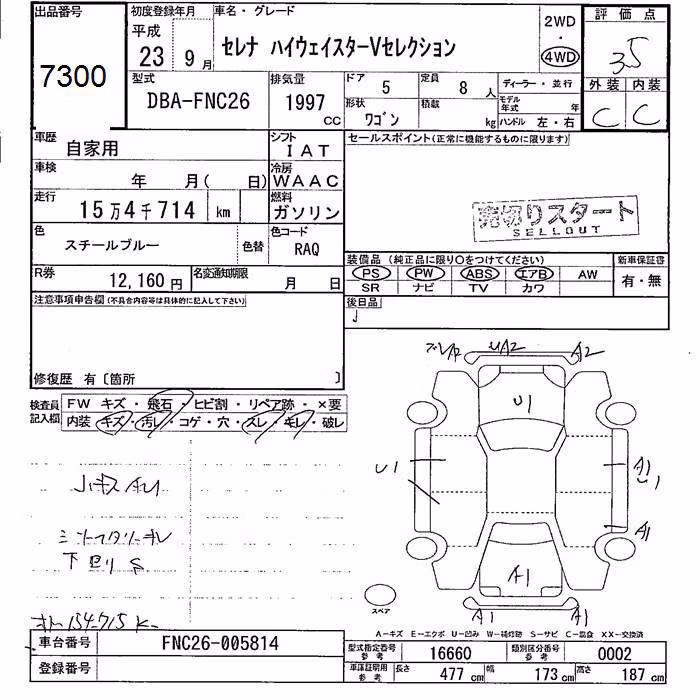 出品番号
7300
初度登録年月
平成
23 9月
車名・グレード
セレナ ハイウェイスターVセレクション
2WD
・
4WD
評価点
3.5
外装 内装
C C
型式
DBA-FNC26
排気量
1997
CC
ドア
5
定員
8人
形状
ワゴン
積載
kg
ディーラー・並行
モデル年式 年
ハンドル 左・右
車歴
自家用
シフト
IAT
車検
年 月( 日)
冷房
WAAC
走行
15万4千714 km
燃料
ガソリン
色
スチールブルー
色替
色コード
RAQ
R券
12,160円
名変通知期限
月 日
セールスポイント(正常に機能するものに限ります)
売切りスタート
SELLOUT
装備品(純正品に限り○をつけてください)
新車保証書
PS PW ABS エアB AW
有・無
SR ナビ TV カワ
後日品
注意事項申告欄(不具合内容等は具体的に記入して下さい)
修復歴 有〔箇所 〕
検査員
記入欄
FW キズ・飛石・ヒビ割・リペア跡・×要
内装 キズ・汚レ・コゲ・穴・ズレ・キレ・破レ
下回りS
154715 K
UA2
A2
U1
U1
A1
U1
A1
A1
A1
A1
スペア
A-キズ E-エクボ U-凹み W-補修跡 S-サビ C-腐食 XX-交換済
車台番号
FNC26-005814
登録番号
型式指定番号
参考
16660
類別区分番号
参考
0002
車庫証明用
参考
長さ
477 cm
幅
173 cm
高さ
187 cm